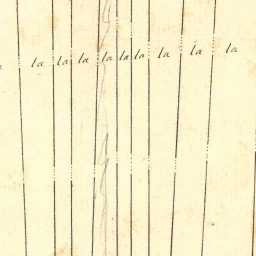 la la la la la la la la la